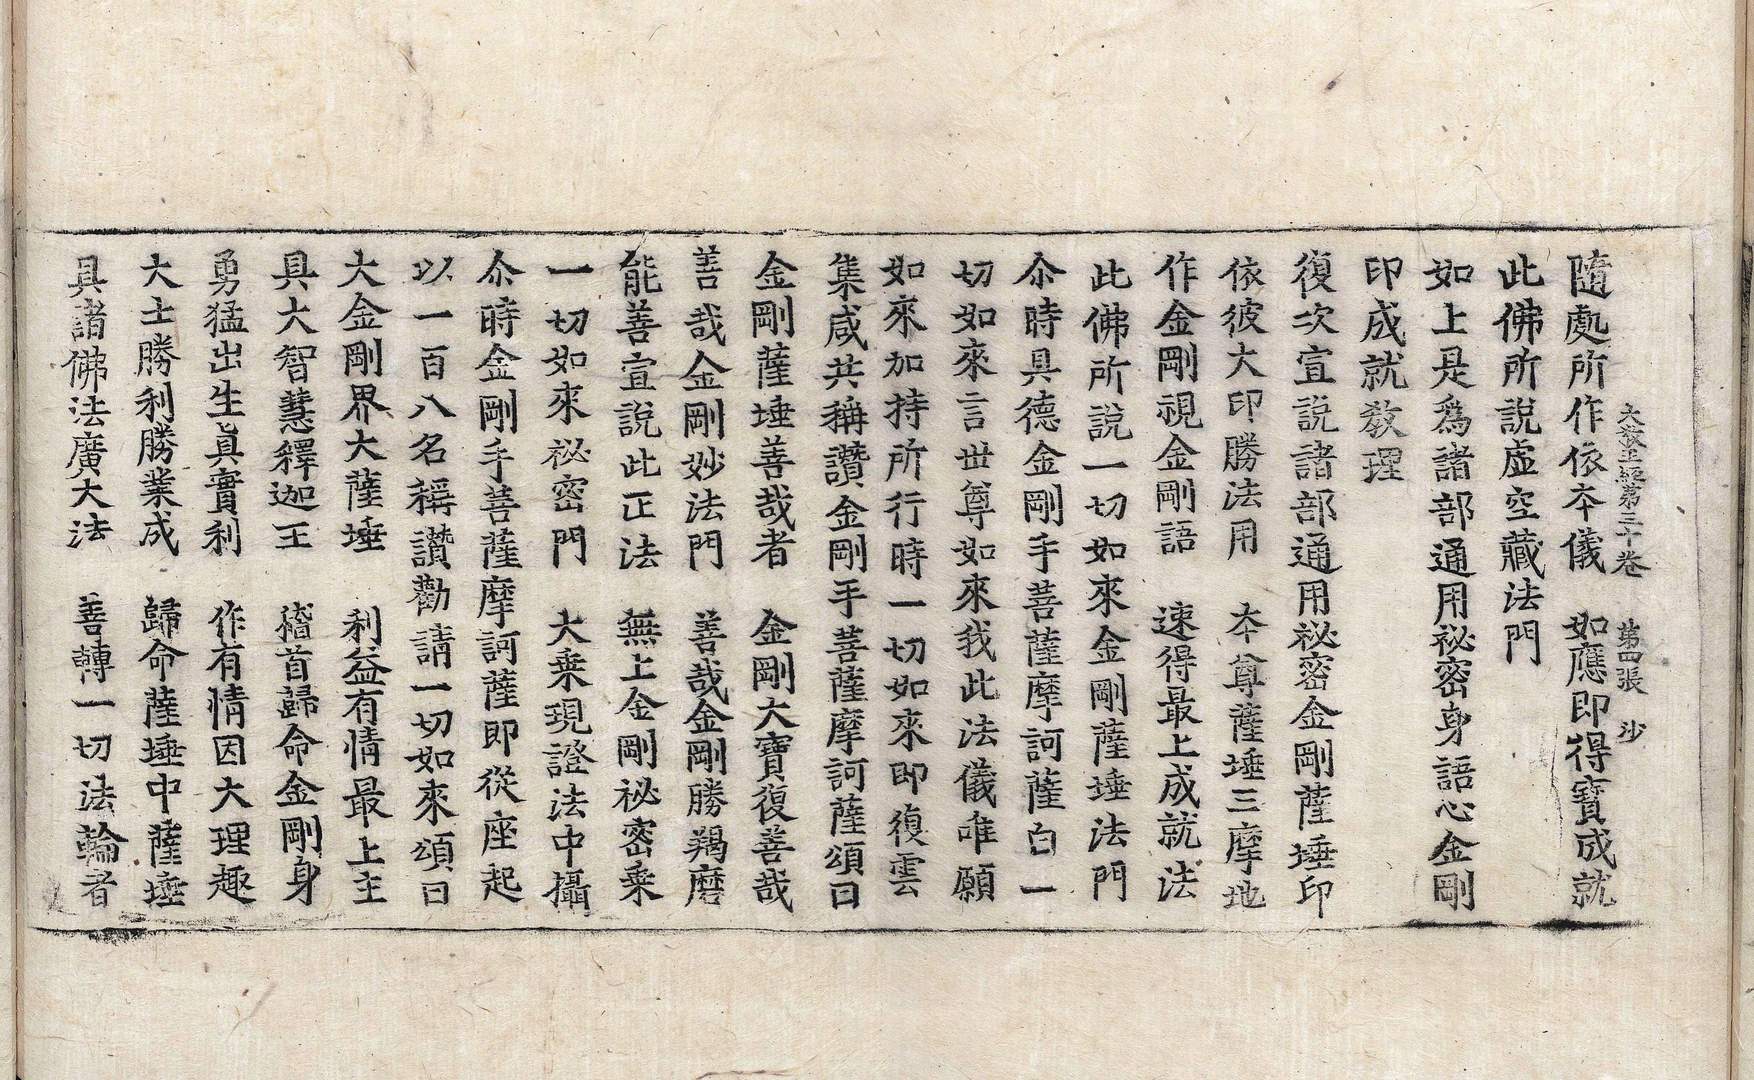 大教王經第三十卷 第四張 沙
隨處所作依夲儀 如應即得寶成就
此佛所說虛空藏法門
如上是爲諸部通用祕密身語心金剛
印成就教理
復次宣說諸部通用祕密金剛薩埵印
依彼大印勝法用 夲尊薩埵三摩地
作金剛視金剛語 速得最上成就法
此佛所說一切如來金剛薩埵法門
尒時具德金剛手菩薩摩訶薩白一
切如來言世尊如來我此法儀唯願
如來加持所行時一切如來即復雲
集咸共稱讚金剛手菩薩摩訶薩頌曰
金剛薩埵善哉者 金剛大寶復善哉
善哉金剛妙法門 善哉金剛勝羯磨
能善宣說此正法 無上金剛祕密乗
一切如來祕密門 大乗現證法中攝
尒時金剛手菩薩摩訶薩即從座起
以一百八名稱讚勸請一切如來頌曰
大金剛界大薩埵 利益有情最上主
具大智慧釋迦王 稽首歸命金剛身
勇猛出生眞實利 作有情因大理趣
大士勝利勝業成 歸命薩埵中薩埵
具諸佛法廣大法 善轉一切法輪者